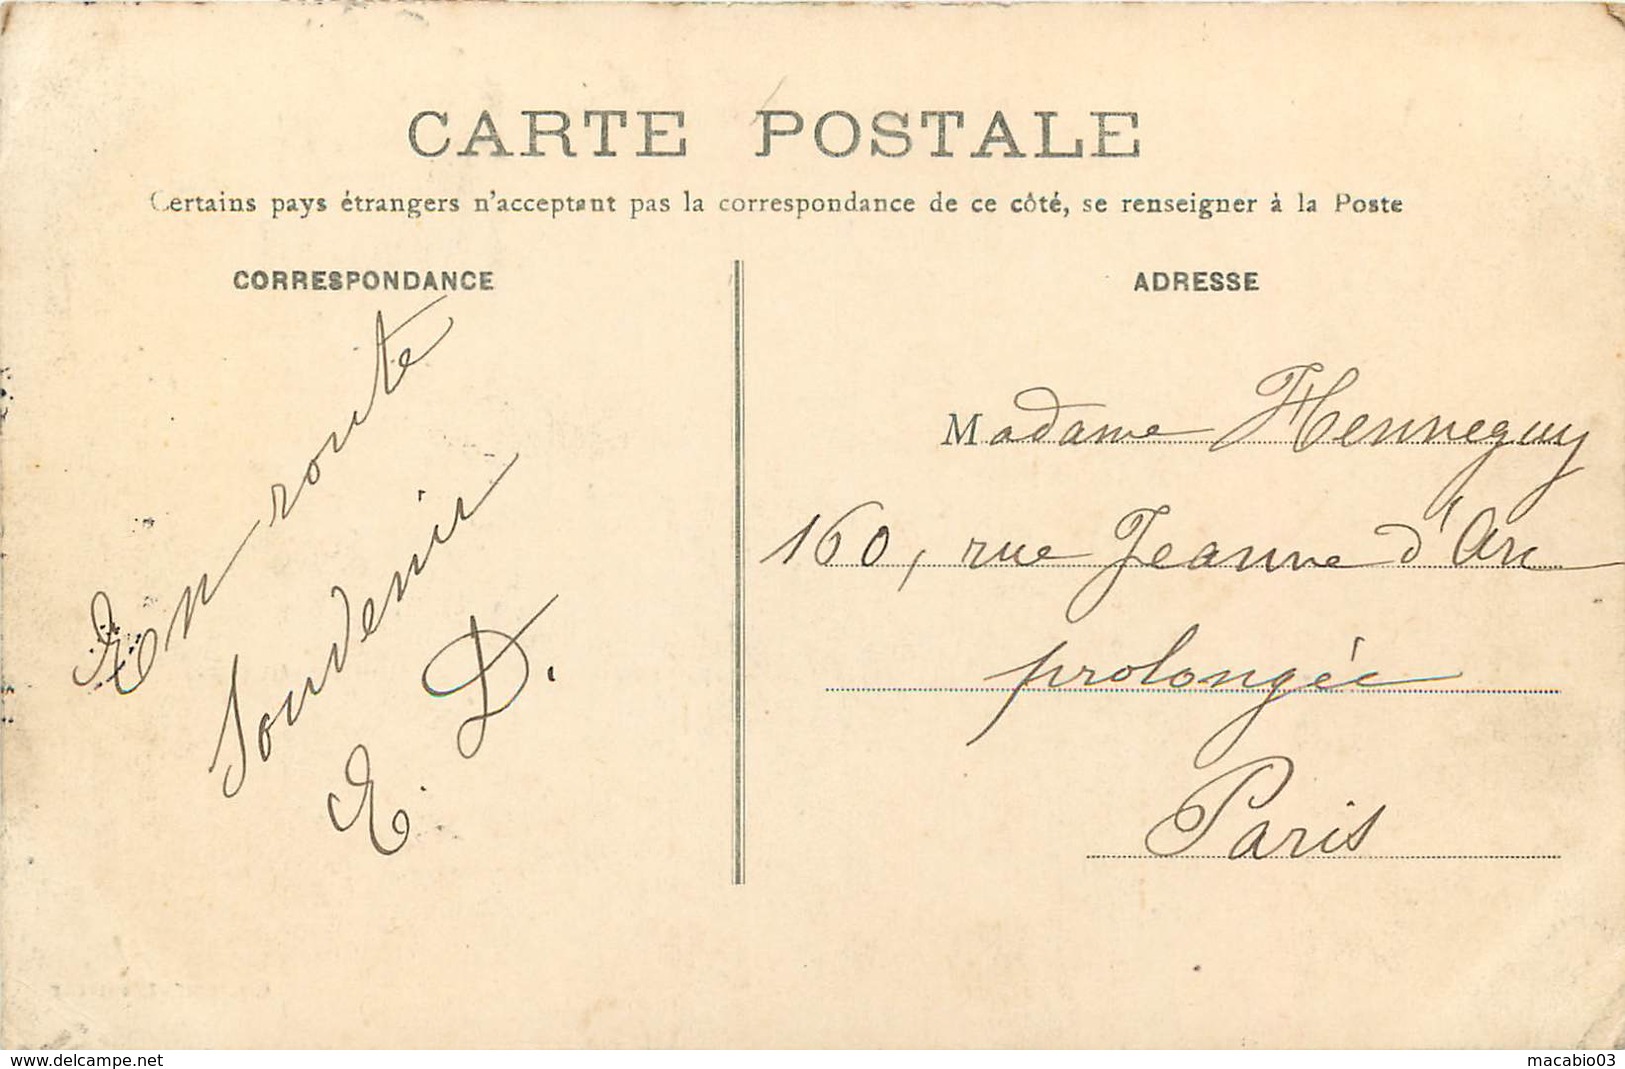 CARTE POSTALE
Certains pays étrangers n'acceptant pas la correspondance de ce côté, se renseigner à la Poste
CORRESPONDANCE
En route
Souvenir
E. D.
ADRESSE
Madame Henneguy
160, rue Jeanne d'Arc
prolongée
Paris
www.delcampe.net
macabio03